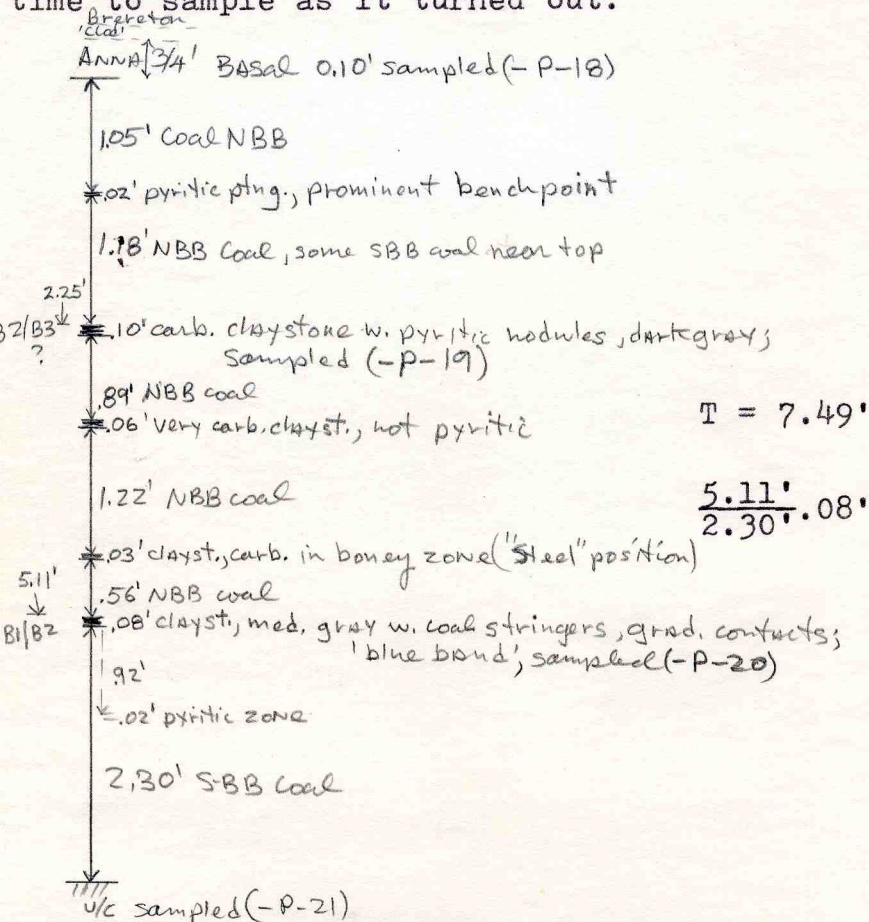 time to sample as it turned out.
Brereton
'clod'
ANNA 3/4' BASal 0.10' sampled (-P-18)
1.05' Coal NBB
.02' pyritic ptng., prominent benchpoint
1.18' NBB Coal, some SBB coal near top
2.25'
B2/B3
?
.10' carb. claystone w. pyritic nodules, dark gray;
Sampled (-P-19)
.89' NBB coal
.06' very carb. clayst., not pyritic
T = 7.49'
1.22' NBB coal
5.11'
2.30' .08'
.03' clayst., carb. in boney zone ("Steel" position)
5.11'
.56' NBB coal
B1/B2
.08' clayst., med. gray w. coal stringers, grad. contacts;
'blue band', sampled (-P-20)
.92'
.02' pyritic zone
2.30' SBB Coal
u/c sampled (-P-21)